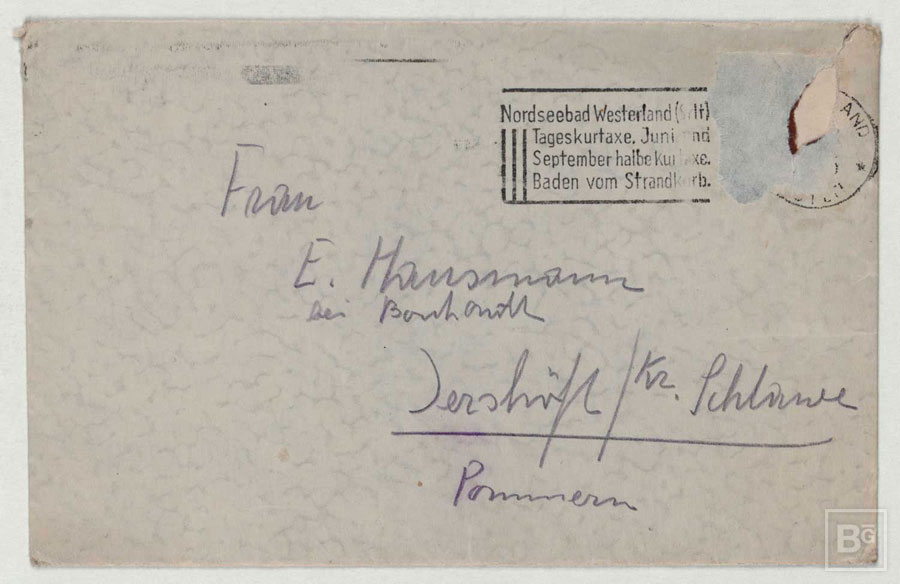 Nordseebad Westerland (Sylt)
Tageskurtaxe. Juni und
September halbe Kurtaxe.
Baden vom Strandkorb.
AND *
Frau
E. Hausmann
bei Bouchardt
Jershöft / Kr. Schlawe
Pommern
BG